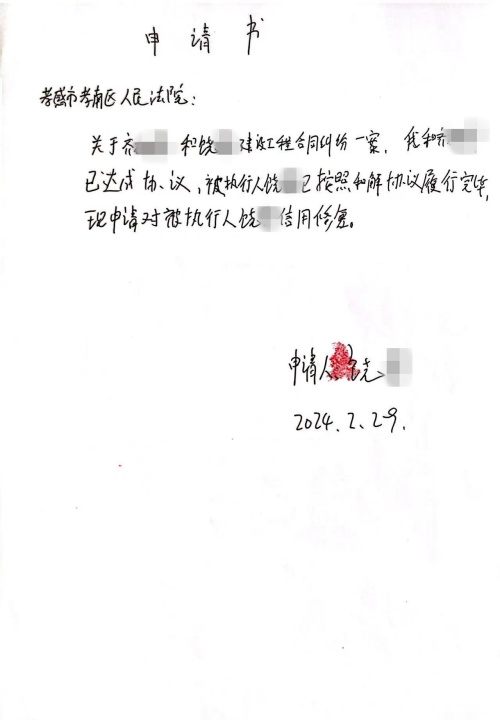 申请书
孝感市孝南区人民法院：
关于齐 和饶 建设工程合同纠纷一案，我和齐
已达成协议，被执行人饶 已按照和解协议履行完毕，
现申请对被执行人饶 信用修复。
申请人 饶
2024.2.29.